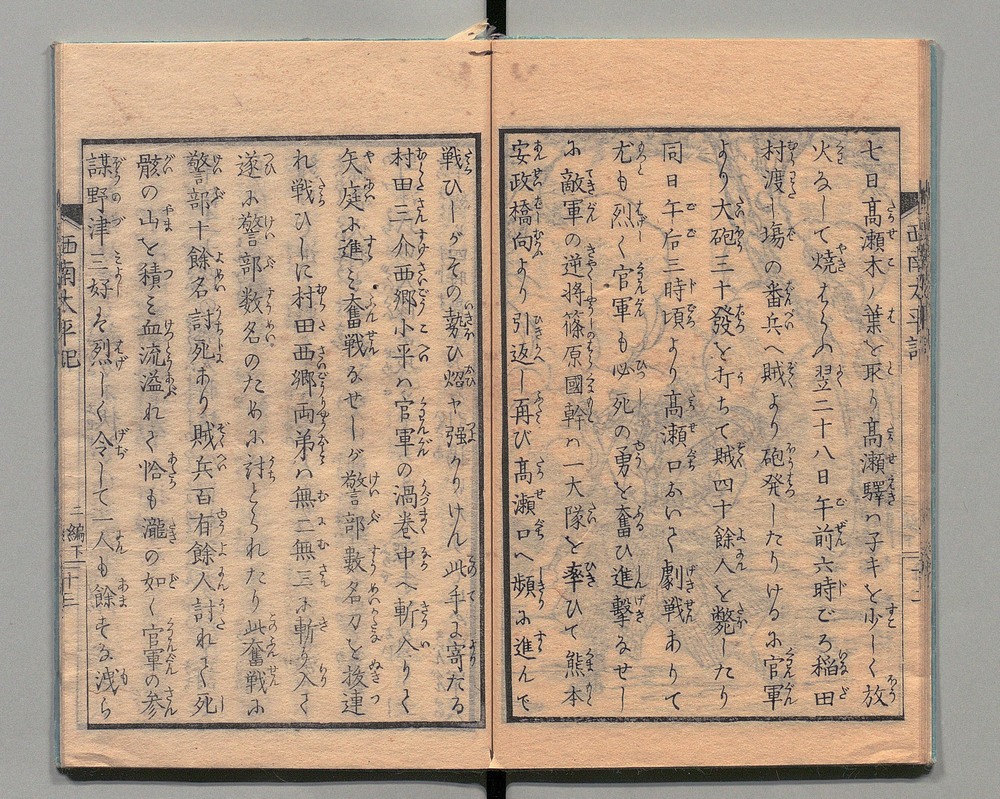 七日高瀬木ノ葉を取り高瀬驛ハ子キを少しく放
火なして焼はらふ翌二十八日午前六時ごろ稲田
村渡し場の番兵へ賊より砲発したりけるに官軍
より大砲三十發を打ちて賊四十餘人を斃したり
同日午后三時頃より高瀬口おいて劇戦ありて
尤も烈く官軍も必死の勇を奮ひ進撃なせし
に敵軍の逆将篠原國幹ハ一大隊を率ひて熊本
安政橋向より引返し再び高瀬口へ頻に進んで
戦ひしがその勢ひ焰や強かりけん此手に寄たる
村田三介西郷小平ハ官軍の渦巻中へ斬入りて
矢庭に進ミ奮戦なせしが警部數名刀を抜連
れ戦ひしに村田西郷両弟ハ無二無三に斬り入て
遂に警部数名のために討とられたり此奮戦に
警部十餘名討死あり賊兵百有餘人討れて死
骸の山を積ミ血流溢れて恰も瀧の如く官軍の参
謀野津三好は烈しく令して一人も餘すな洩ら
西南太平記
二編下
十二
西南太平記
二編下
十三